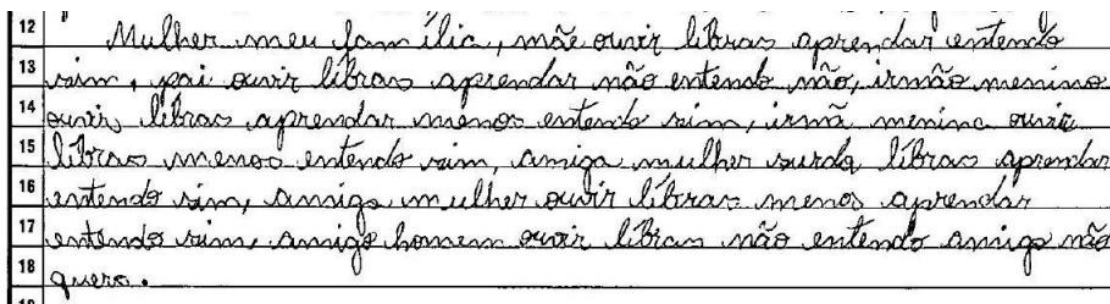 12 Mulher meu família, mãe ouvir libras aprendar entendo
13 sim, pai ouvir libras aprendar não entendo não, irmão menino
14 ouvir libras aprendar menos entendo sim, irmã menina ouvir
15 libras menos entendo sim, amiga mulher surda libras aprendar
16 entendo sim, amiga mulher ouvir libras menos aprendar
17 entendo sim, amigo homem ouvir libras não entendo amigo não
18 quero.